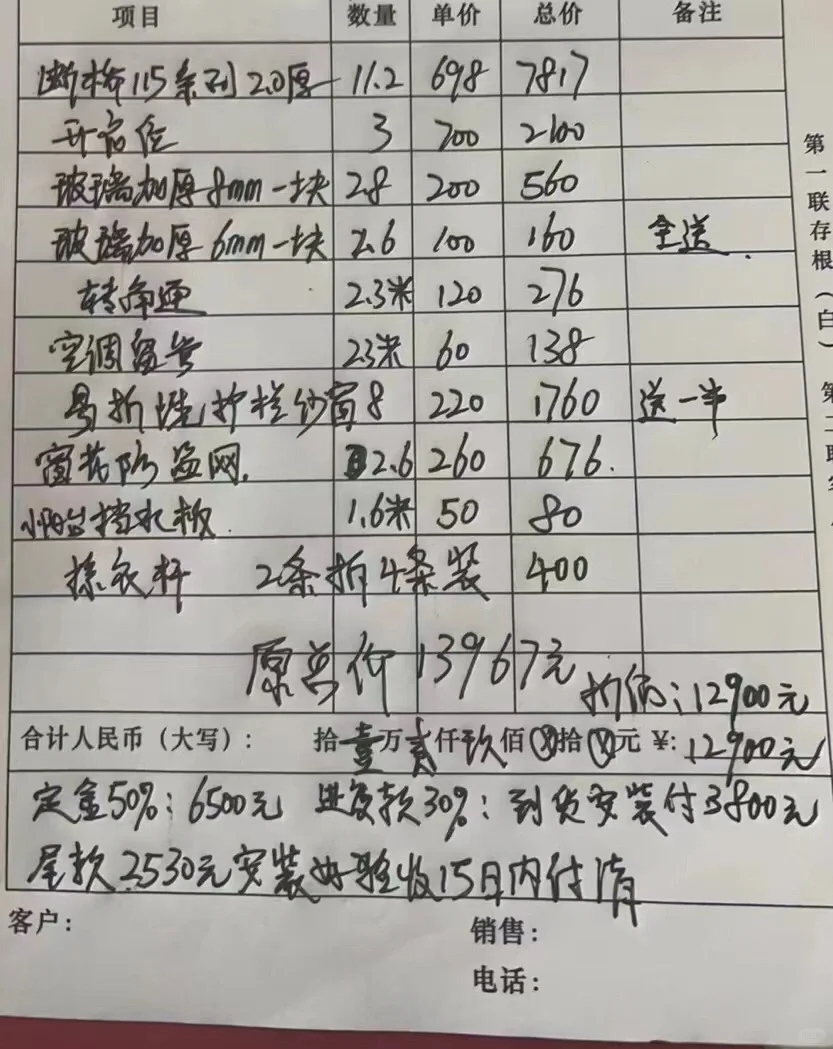 项目 数量 单价 总价 备注
断桥115系列2.0厚 11.2 698 7817
开启位 3 700 2100
玻璃加厚8mm一块 2.8 200 560
玻璃加厚6mm一块 2.6 100 160 全送.
转角通 2.3米 120 276
空调百叶 23米 60 138
易拆洗护栏纱窗 8 220 1760 送一半
窗花防盗网. 2.6 260 676.
小阳台挡水板. 1.6米 50 80
晾衣杆 2条拆4条装 400
原总价 13967元
折后:12900元
合计人民币(大写): 拾壹万贰仟玖佰⊗拾⊗元 ¥: 12900元
定金50%:6500元 进度款30%:到货安装付3800元
尾款2530元安装好验收15日内付清
客户:
销售:
电话:
第一联存根(白) 第二联